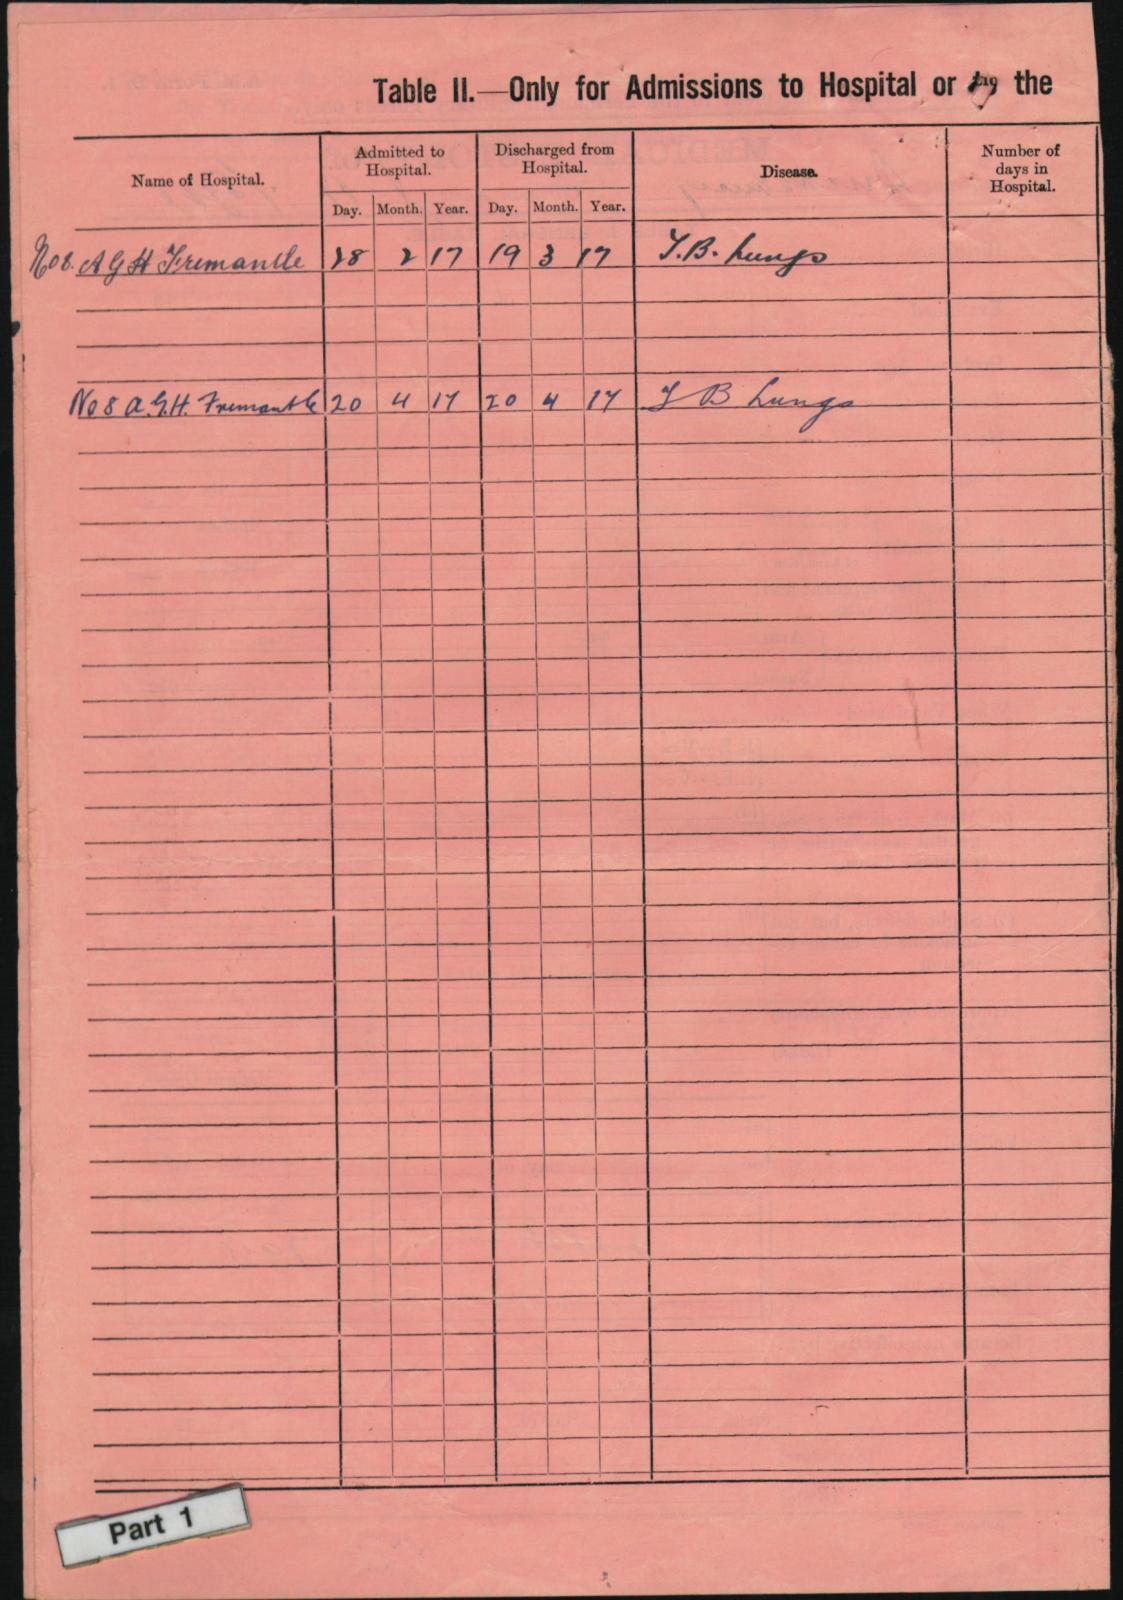 Table II.—Only for Admissions to Hospital or the
Name of Hospital.
Admitted to Hospital.
Discharged from Hospital.
Disease.
Number of days in Hospital.
Day. Month. Year. Day. Month. Year.
No 8. A G H Fremantle 28 2 17 19 3 17 T.B. Lungs
No 8 A.G.H. Fremantle 20 4 17 20 4 17 T B Lungs
Part 1